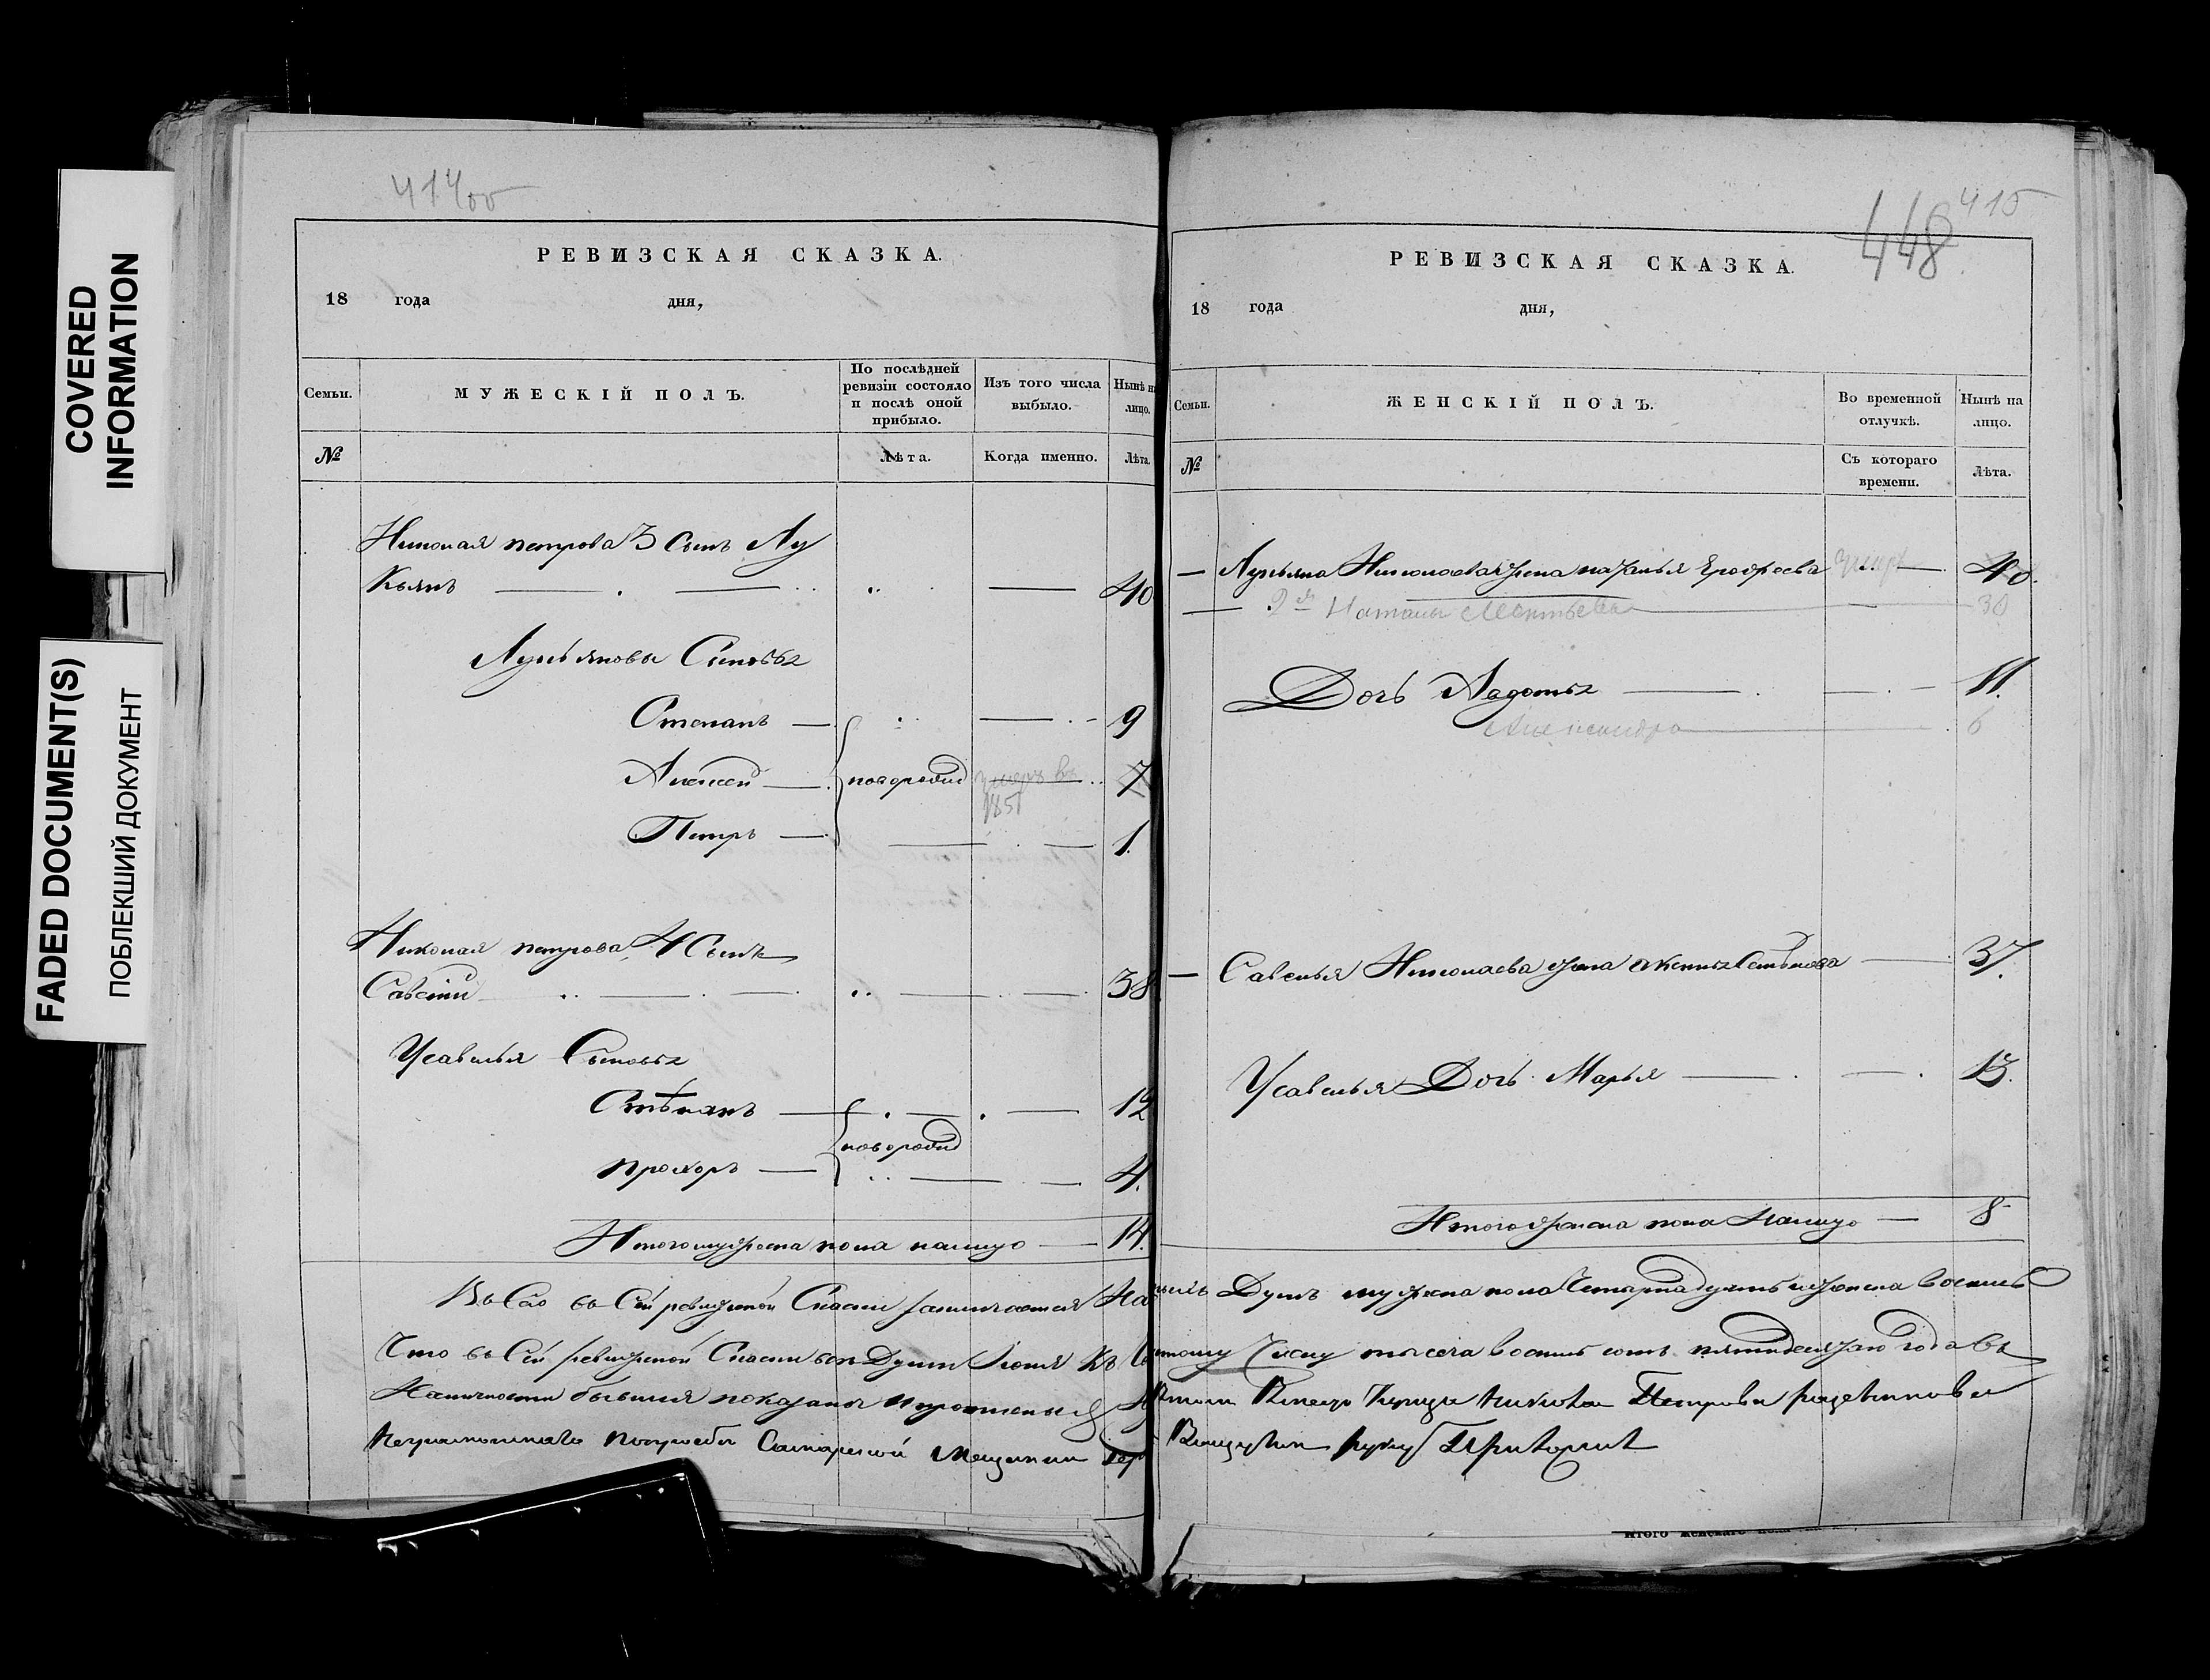 COVERED
INFORMATION
FADED DOCUMENT(S)
ПОБЛЕКШИЙ ДОКУМЕНТ
414об
РЕВИЗСКАЯ СКАЗКА.
18 года дня,
Семьи. МУЖЕСКІЙ ПОЛЪ. По послѣдней ревизіи состояло и послѣ оной прибыло. Изъ того числа выбыло. Нынѣ на лицо.
№ Лѣта. Когда именно. Лѣта.
Николая петрова 3 сынъ Лу
кьянъ 40
Лукьяновы Сыновья
Степанъ 9
Алексей новорожд умеръ въ 1851 7
Петръ 1
Николая петрова 4 Сынъ
Савелий 38
У савелья Сыновья
Стѣпанъ 12
новорожд
прохоръ 4.
Итого мужеска пола налицо 14.
448 415
РЕВИЗСКАЯ СКАЗКА.
18 года дня,
Семьи. ЖЕНСКІЙ ПОЛЪ. Во временной отлучкѣ. Нынѣ на лицо.
№ Съ котораго времени. Лѣта.
Лукьяна Николаева жена наталья Ерофеева умер 40.
2я Наталья Леонтьева 30
Дочь Авдотья 11.
Александра 6
Савелья Николаева жена аксинья Стѣпанова 37.
У савелья Дочь Марья 13.
Итого женска пола налицо 8
Всего въ Сей ревижской Скаски заключается На лицо Душъ мужска пола Четырнадцать и женска восемь
Что въ Сей ревижской Скаски все Души Коимъ къ тому Числу тысеча восемь сотъ пятидесятаго года въ
Наличности бывшия показаны и пропи
неграмотнаго Самарской мещанин руку Приложил
Итого женскаго пола